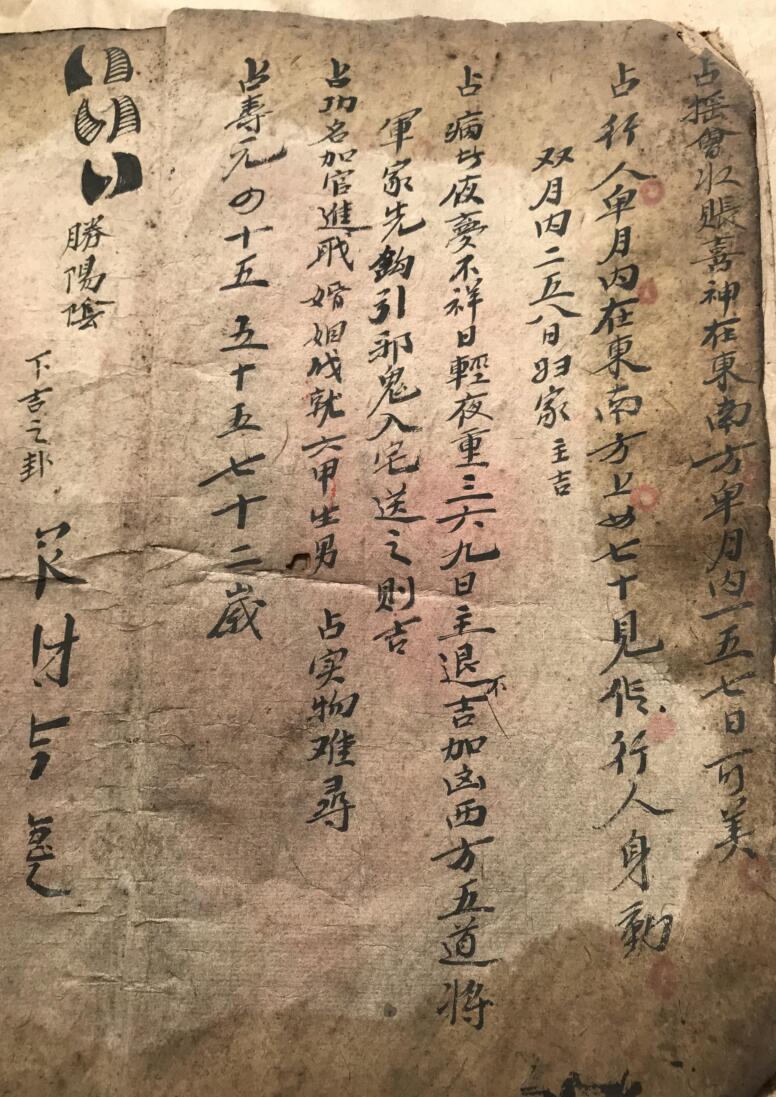 占摇會收賬喜神在東南方单月内一五七日可美
占行人单月内在東南方上廿七十見信行人身動
双月内二五八日归家主吉
占病此夜夢不祥日輕夜重三六九日主退不吉加凶西方五道将
軍家先鈎引邪鬼入宅送之則吉
占功名加官進职婚姻成就六甲生男 占实物难尋
占壽元四十五 五十五七十二歲
勝陽陰
下吉之卦